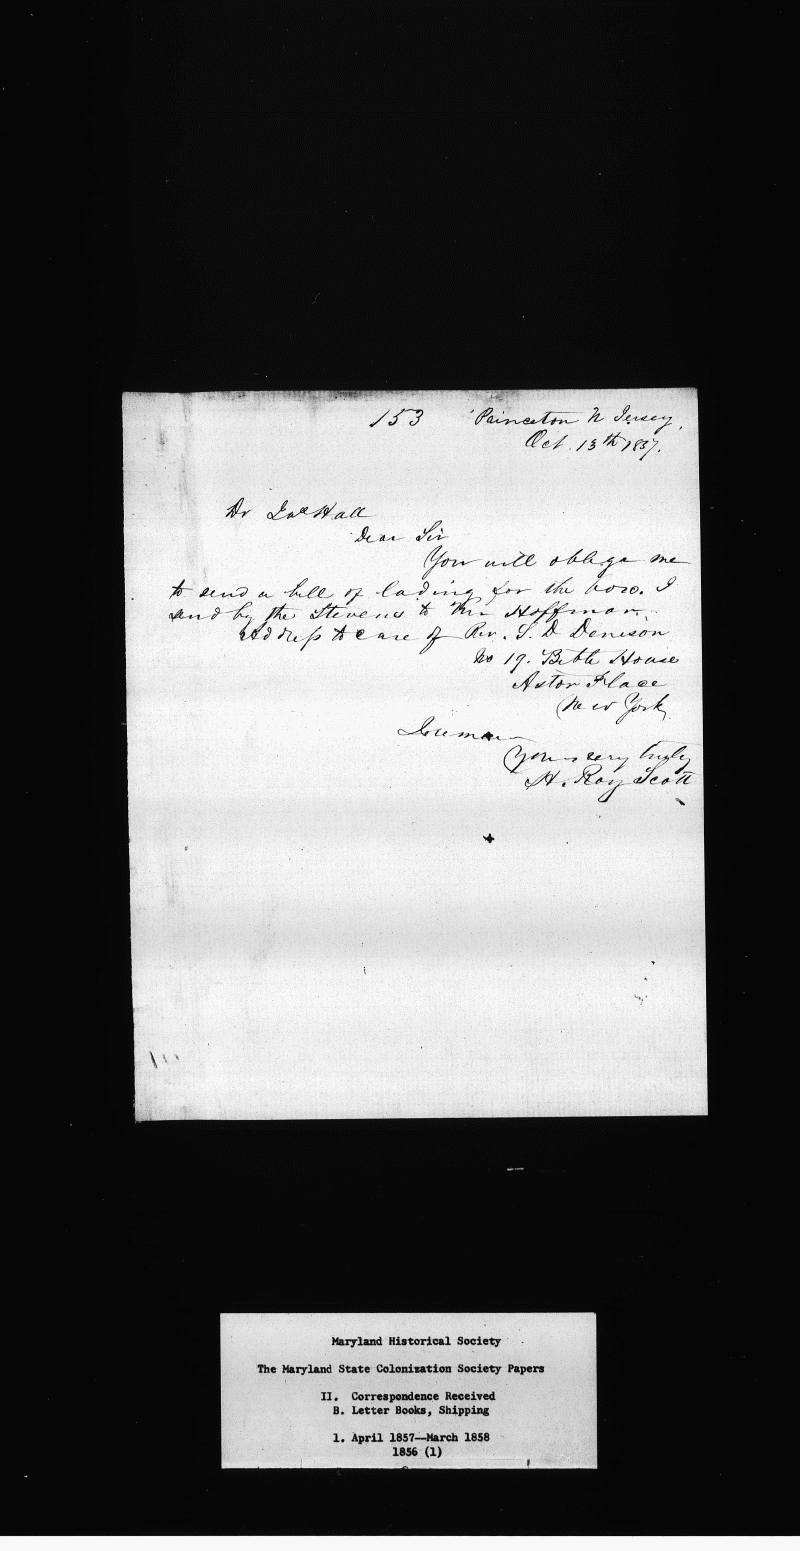 153 Princeton N Jersey,
Oct. 13th 1857.
Dr Jas Hall
Dear Sir
You will oblige me
to send a bill of lading for the box. I
send by the Stevens to Mr Hoffman.
Address to care of Rev. S. D. Denison
No 19. Bible House
Astor Place
New York,
I remain
Yours very truly
H. Roy Scott
Maryland Historical Society
The Maryland State Colonization Society Papers
II. Correspondence Received
B. Letter Books, Shipping
1. April 1857--March 1858
1856 (1)